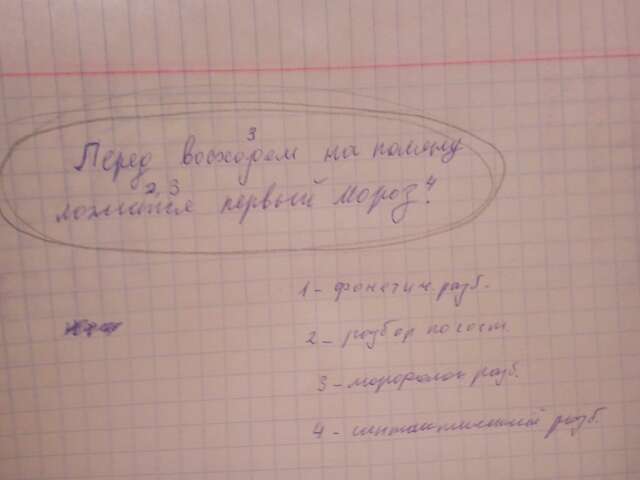 Перед восходом³ на поляну
ложится²,³ первый мороз.⁴
1 - фонетич. разб.
2 - разбор по сост.
3 - морфолог разб.
4 - синтаксический разб.